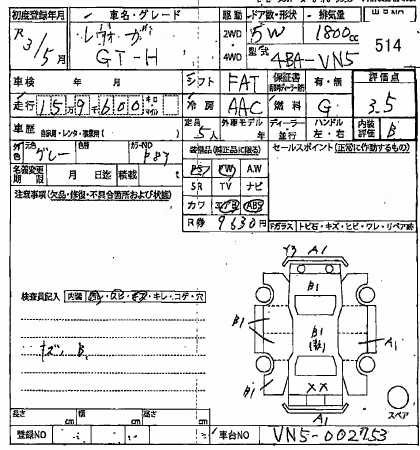 初度登録年月 車名・グレード 駆動 ドア数・形状 排気量
R 3/5月 レヴォーグ 2WD 5W 1800cc
GT-H 4WD 型式 4BA-VN5 514
車検 年 月 シフト FAT 保証書 有・無 評価点
走行 159600 キロ マイル 冷房 AAC 燃料 G 3.5
車歴 自家用・レンタ・事業用( ) 定員 5人 外車モデル 年 ディーラー 並行 ハンドル 左・右 内装評価 B
外色 元色 グレー 色替 カラーNO P87 装備品(純正品に限る) セールスポイント(正常に作動するもの)
名義変更期限 月 日迄 積載 t PS PW A.W
注意事項(欠品・修復・不具合箇所および状態) SR TV ナビ
カワ エアB ABS
R券 9630円 Fガラス トビ石・キズ・ヒビ・ワレ・リペア跡
Y3 A1
B1
検査員記入 内装 キレ・コゲ・穴
B1 B1 A1
キズ B1
B1 XX
A1 スペア
長さ cm 幅 cm 高さ cm
登録NO 車台NO VN5-002753